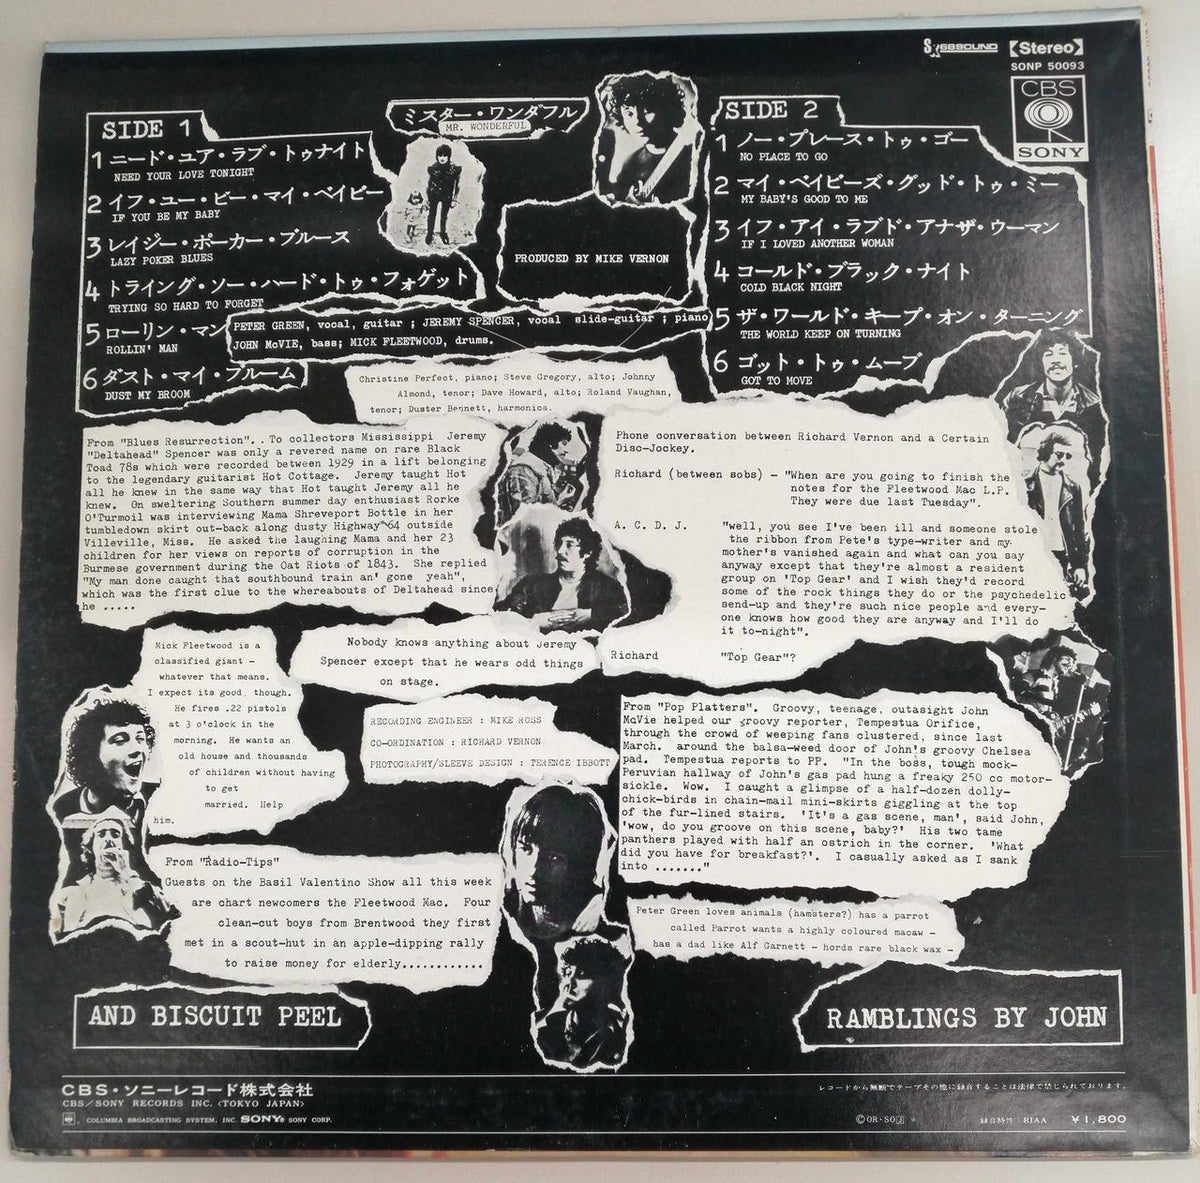 SBSOUND 【Stereo】
SONP 50093
CBS
SONY
ミスター・ワンダフル
MR. WONDERFUL
SIDE 1
1 ニード・ユア・ラブ・トゥナイト
NEED YOUR LOVE TONIGHT
2 イフ・ユー・ビー・マイ・ベイビー
IF YOU BE MY BABY
3 レイジー・ポーカー・ブルース
LAZY POKER BLUES
4 トライング・ソー・ハード・トゥ・フォゲット
TRYING SO HARD TO FORGET
5 ローリン・マン
ROLLIN' MAN
6 ダスト・マイ・ブルーム
DUST MY BROOM
PRODUCED BY MIKE VERNON
SIDE 2
1 ノー・プレース・トゥ・ゴー
NO PLACE TO GO
2 マイ・ベイビーズ・グッド・トゥ・ミー
MY BABY'S GOOD TO ME
3 イフ・アイ・ラブド・アナザ・ウーマン
IF I LOVED ANOTHER WOMAN
4 コールド・ブラック・ナイト
COLD BLACK NIGHT
5 ザ・ワールド・キープ・オン・ターニング
THE WORLD KEEP ON TURNING
6 ゴット・トゥ・ムーブ
GOT TO MOVE
PETER GREEN, vocal, guitar ; JEREMY SPENCER, vocal slide-guitar ; piano
JOHN McVIE, bass; MICK FLEETWOOD, drums.
Christine Perfect, piano; Steve Gregory, alto; Johnny
Almond, tenor; Dave Howard, alto; Roland Vaughan,
tenor; Duster Bennett, harmonica.
From "Blues Resurrection". . To collectors Mississippi Jeremy
"Deltahead" Spencer was only a revered name on rare Black
Toad 78s which were recorded between 1929 in a lift belonging
to the legendary guitarist Hot Cottage. Jeremy taught Hot
all he knew in the same way that Hot taught Jeremy all he
knew. On sweltering Southern summer day enthusiast Rorke
O'Turmoil was interviewing Mama Shreveport Bottle in her
tumbledown skirt out-back along dusty Highway 64 outside
Villeville, Miss. He asked the laughing Mama and her 23
children for her views on reports of corruption in the
Burmese government during the Oat Riots of 1843. She replied
"My man done caught that southbound train an' gone yeah",
which was the first clue to the whereabouts of Deltahead since
he .....
Phone conversation between Richard Vernon and a Certain
Disc-Jockey.
Richard (between sobs) - "When are you going to finish the
notes for the Fleetwood Mac L.P.
They were due last Tuesday".
A. C. D. J. "well, you see I've been ill and someone stole
the ribbon from Pete's type-writer and my
mother's vanished again and what can you say
anyway except that they're almost a resident
group on 'Top Gear' and I wish they'd record
some of the rock things they do or the psychedelic
send-up and they're such nice people and every-
one knows how good they are anyway and I'll do
it to-night".
Richard "Top Gear"?
Mick Fleetwood is a
classified giant -
whatever that means.
I expect its good, though.
He fires .22 pistols
at 3 o'clock in the
morning. He wants an
old house and thousands
of children without having
to get
married. Help
him.
Nobody knows anything about Jeremy
Spencer except that he wears odd things
on stage.
RECORDING ENGINEER : MIKE ROSS
CO-ORDINATION : RICHARD VERNON
PHOTOGRAPHY/SLEEVE DESIGN : TERENCE IBBOTT
From "Pop Platters". Groovy, teenage, outasight John
McVie helped our groovy reporter, Tempestua Orifice,
through the crowd of weeping fans clustered, since last
March. around the balsa-weed door of John's groovy Chelsea
pad. Tempestua reports to PP. "In the boss, tough mock-
Peruvian hallway of John's gas pad hung a freaky 250 cc motor-
sickle. Wow. I caught a glimpse of a half-dozen dolly-
chick-birds in chain-mail mini-skirts giggling at the top
of the fur-lined stairs. 'It's a gas scene, man', said John,
'wow, do you groove on this scene, baby?' His two tame
panthers played with half an ostrich in the corner. 'What
did you have for breakfast?'. I casually asked as I sank
into ......."
From "Radio-Tips"
Guests on the Basil Valentino Show all this week
are chart newcomers the Fleetwood Mac. Four
clean-cut boys from Brentwood they first
met in a scout-hut in an apple-dipping rally
to raise money for elderly............
Peter Green loves animals (hamsters?) has a parrot
called Parrot wants a highly coloured macaw -
has a dad like Alf Garnett - hords rare black wax -
AND BISCUIT PEEL
RAMBLINGS BY JOHN
CBS・ソニーレコード株式会社
CBS/SONY RECORDS INC. <TOKYO JAPAN>
COLUMBIA BROADCASTING SYSTEM, INC. SONY® SONY CORP.
レコードから無断でテープその他に録音することは法律で禁じられております。
©OR・SO 録音特性：RIAA ¥1,800